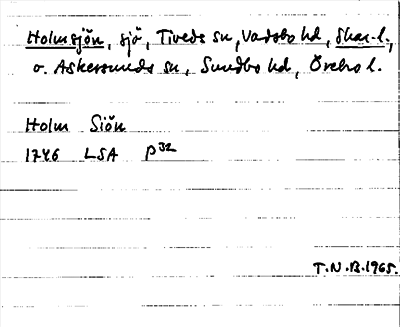 Holmsjön, sjö, Tiveds sn, Vadsbo hd, Skar. l.,
o. Askersunds sn, Sundbo hd, Örebro l.
Holm Siön
1746 LSA P32
T.N.B. 1965.